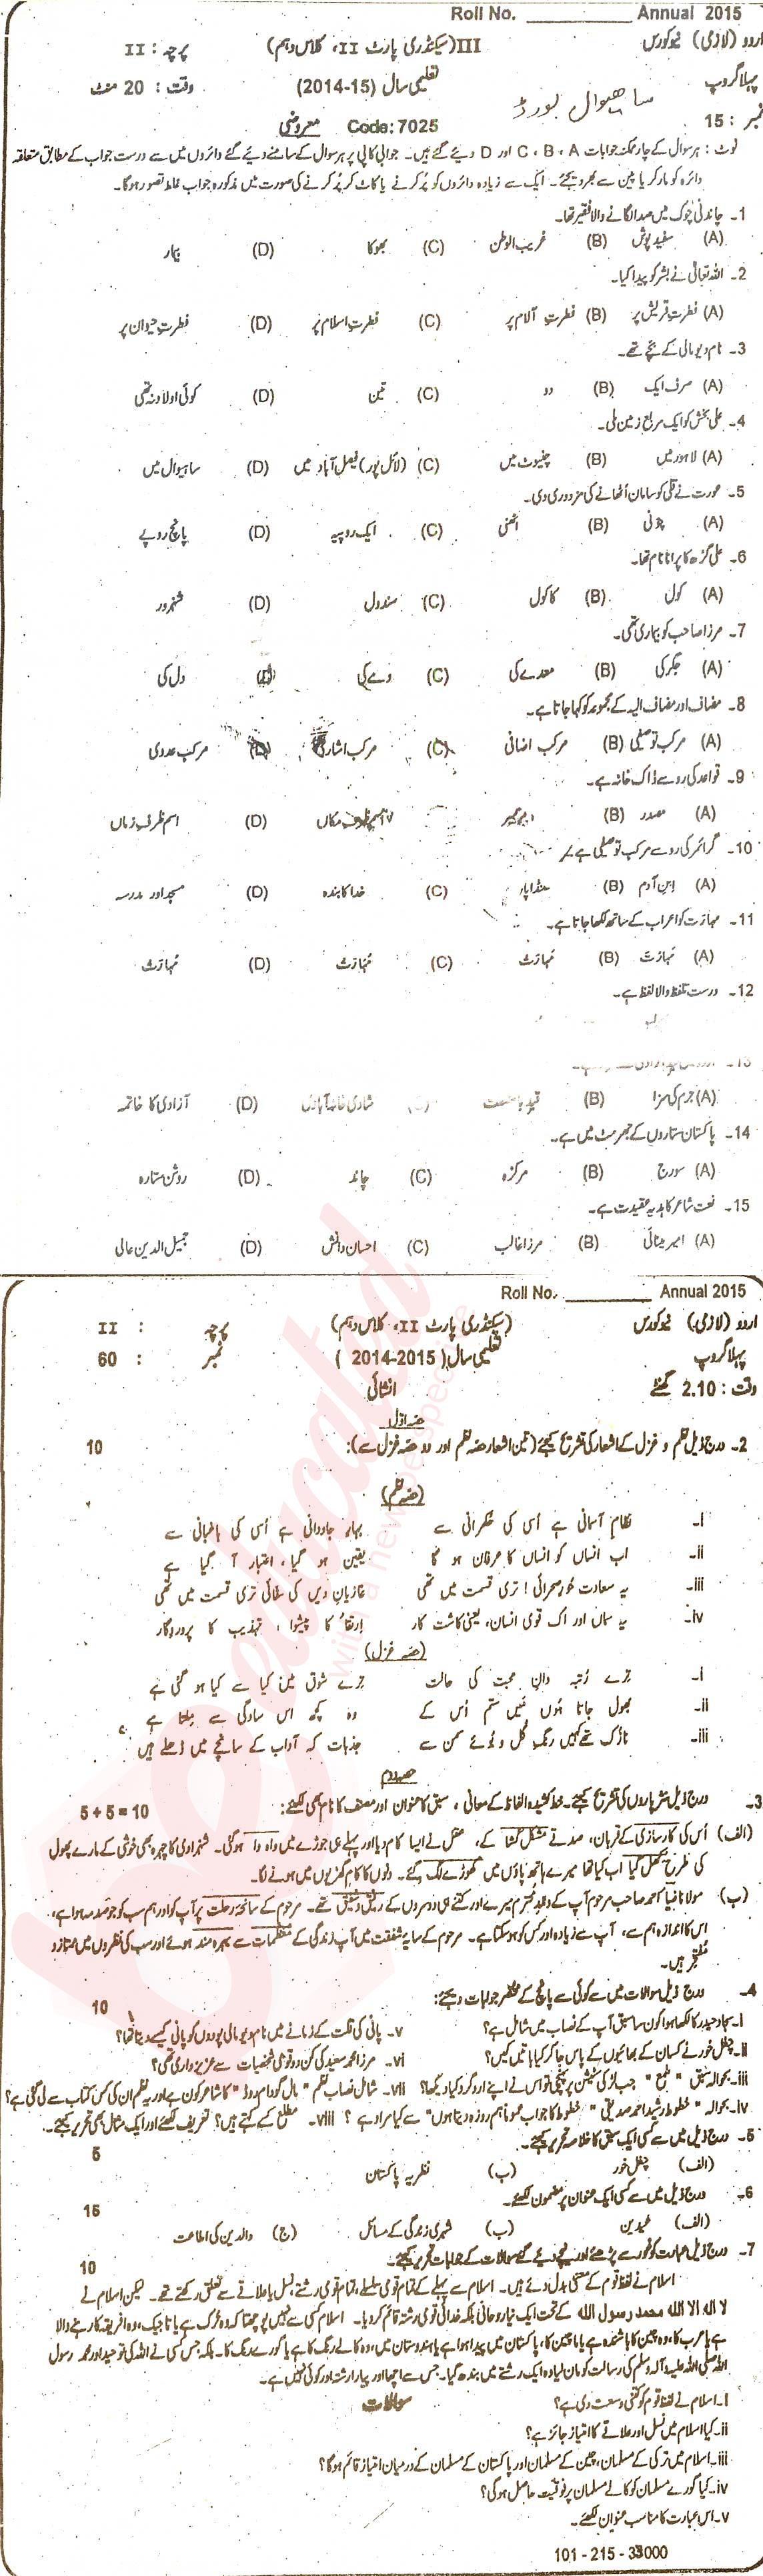 Roll No. ____________ Annual 2015
اردو (لازمی) نیوکورس III (سیکنڈری پارٹ II، کلاس دہم) پرچہ : II
پہلا گروپ تعلیمی سال (2014-15) وقت : 20 منٹ
ساہیوال بورڈ
نمبر : 15 Code: 7025 معروضی
نوٹ : ہر سوال کے چار ممکنہ جوابات C ، B ، A اور D دیئے گئے ہیں۔ جوابی کاپی پر ہر سوال کے سامنے دیئے گئے دائروں میں سے درست جواب کے مطابق متعلقہ
دائرہ کو مارکر یا پین سے بھر دیجئے۔ ایک سے زیادہ دائروں کو پُر کرنے یا کاٹ کر پُر کرنے کی صورت میں مذکورہ جواب غلط تصور ہوگا۔
1۔ چاندنی چوک میں صدا لگانے والا فقیر تھا۔
(A) سفید پوش (B) غریب الوطن (C) بھوکا (D) بیمار
2۔ اللہ تعالیٰ نے بشر کو پیدا کیا۔
(A) فطرتِ قریش پر (B) فطرتِ آلام پر (C) فطرتِ اسلام پر (D) فطرتِ حیوان پر
3۔ نام دیو مالی کے بچے تھے۔
(A) صرف ایک (B) دو (C) تین (D) کوئی اولاد نہ تھی
4۔ علی بخش کو ایک مربع زمین ملی۔
(A) لاہور میں (B) چنیوٹ میں (C) (لائل پور) فیصل آباد میں (D) ساہیوال میں
5۔ عورت نے قلی کو سامان اُٹھانے کی مزدوری دی۔
(A) چونی (B) اٹھنی (C) ایک روپیہ (D) پانچ روپے
6۔ علی گڑھ کا پرانا نام تھا۔
(A) کول (B) کاکول (C) سندول (D) شہزور
7۔ مرزا صاحب کو بیماری تھی۔
(A) جگر کی (B) معدے کی (C) دمے کی (D) دل کی
8۔ مضاف اور مضاف الیہ کے مجموعہ کو کہا جاتا ہے۔
(A) مرکب توصیفی (B) مرکب اضافی (C) مرکب اشاری (D) مرکب عددی
9۔ قواعد کی رو سے ڈاک خانہ ہے۔
(A) مصدر (B) اسم ظرف مکاں (D) اسم ظرف زماں
10۔ گرائمر کی رو سے مرکب توصیفی ہے۔
(A) ابنِ آدم (B) ٹھنڈا پانی (C) خدا کا بندہ (D) مسجد اور مدرسہ
11۔ مہازت کو اعراب کے ساتھ لکھا جاتا ہے۔
(A) (B) (C) (D)
12۔ درست تلفظ والا لفظ ہے۔
(A) جرم کی سزا (B) قیدِ بامشقت (C) شادی خانہ آبادی (D) آزادی کا خاتمہ
14۔ پاکستان ستاروں کے جھرمٹ میں ہے۔
(A) سورج (B) مرکزہ (C) چاند (D) روشن ستارہ
15۔ نعت شاعر کا ہدیہ عقیدت ہے۔
(A) امیر مینائی (B) مرزا غالب (C) احسان دانش (D) جمیل الدین عالی
Roll No. ____________ Annual 2015
اردو (لازمی) نیوکورس (سیکنڈری پارٹ II، کلاس دہم) پرچہ : II
پہلا گروپ تعلیمی سال (2014-2015) نمبر : 60
وقت : 2.10 گھنٹے انشائی
حصہ اوّل
2۔ درج ذیل نظم و غزل کے اشعار کی تشریح کیجئے (تین اشعار حصہ نظم اور دو حصہ غزل سے): 10
(حصہ نظم)
i۔ نظامِ آسمانی ہے اُس کی حکمرانی سے بہارِ جاودانی ہے اُس کی باغبانی سے
ii۔ اب انساں کو انساں کا عرفان ہو گا یقین ہو گیا، اعتبار آ گیا ہے
iii۔ یہ سعادت حُورِ صحرائی! تری قسمت میں تھی غازیانِ دیں کی سقائی تری قسمت میں تھی
iv۔ یہ سماں اور اک قوی انسان، یعنی کاشت کار اِرتقا کا پیشوا ، تہذیب کا پروردگار
(حصہ غزل)
i۔ ترے رتبہ دانِ محبت کی حالت ترے شوق میں کیا سے کیا ہو گئی ہے
ii۔ بھول جاتا ہوں میں ستم اُس کے وہ کچھ اس سادگی سے ملتا ہے
iii۔ نازک تھے کہیں رنگِ گل و بُوئے سمن سے جذبات کہ آداب کے سانچے میں ڈھلے ہیں
حصہ دوم
3۔ درج ذیل نثرپاروں کی تشریح کیجئے۔ خط کشیدہ الفاظ کے معانی ، سبق کا عنوان اور مصنف کا نام بھی لکھئے: 5+5=10
(الف) اُس کی کارسازی کے قربان، صدقے مشکل کشا کے، عقل نے ایسا کام دیا اور پہلے ہی جوڑے میں واہ وا ہو گئی۔ شہزادی کا چہرہ بھی خوشی کے مارے پھول
کی طرح کھل گیا اب کیا تھا میرے ہاتھ پاؤں میں گھوڑے لگ گئے۔ دنوں کا کام گھڑیوں میں ہونے لگا۔
(ب) مولانا ضیا احمد صاحب مرحوم آپ کے والد محترم میرے اور کتنے ہی دوسروں کے رفیق و شفیق تھے۔ مرحوم کے سانحۂ رحلت پر آپ کو اور ہم سب کو جو صدمہ ہوا ہے،
اس کا اندازہ ہم سے، آپ سے زیادہ اور کس کو ہو سکتا ہے۔ مرحوم کے سایۂ شفقت میں آپ زندگی کے مقتضیات سے بہرہ مند ہوئے اور سب کی نظروں میں ممتاز و
مفتخر ہیں۔
4۔ درج ذیل سوالات میں سے کوئی سے پانچ کے مختصر جوابات دیجئے: 10
i۔ سجاد حیدر کا لکھا ہوا کون سا سبق آپ کے نصاب میں شامل ہے؟ v۔ پانی کی قلت کے زمانے میں نام دیو مالی پودوں کو پانی کیسے دیتا تھا؟
ii۔ چغل خور نے کسان کے بھائیوں کے پاس جا کر کیا باتیں کیں؟ vi۔ مرزا محمد سعید کی کن دو قومی شخصیات سے عزیز داری تھی؟
iii۔ بحوالہ سبق "طمع" جب لڑکی سٹیشن پر پہنچی تو اس نے اپنے اردگرد کیا دیکھا؟ vii۔ شامل نصاب نظم "مال گودام روڈ" کا شاعر کون ہے اور یہ نظم ان کی کس کتاب سے لی گئی ہے؟
iv۔ بحوالہ "خطوط رشید احمد صدیقی" "خطوط کا جواب عموماً ہم روزہ دیتا ہوں" سے کیا مراد ہے؟ viii۔ مطلع کسے کہتے ہیں؟ تعریف لکھئے اور ایک مثال بھی تحریر کیجئے۔
5۔ درج ذیل میں سے کسی ایک سبق کا خلاصہ تحریر کیجئے۔ 5
(الف) چغل خور (ب) نظریہ پاکستان
6۔ درج ذیل میں سے کسی ایک عنوان پر مضمون لکھئے۔ 15
(الف) عیدین (ب) شہری زندگی کے مسائل (ج) والدین کی اطاعت
7۔ درج ذیل عبارت کو غور سے پڑھئے اور نیچے دیے گئے سوالات کے جوابات تحریر کیجئے۔ 10
اسلام نے لفظ قوم کے معنی بدل دئے ہیں۔ اسلام سے پہلے کے تمام قومی سلسلے، تمام قومی رشتے، نسل یا علاقے سے تعلق رکھتے تھے۔ لیکن اسلام نے
لا اله الا الله محمد رسول الله کے تحت ایک نیا روحانی بلکہ خدائی قومی رشتہ قائم کر دیا۔ اسلام کسی سے نہیں پوچھتا کہ وہ ترک ہے یا تاجیک، وہ افریقہ کا رہنے والا
ہے یا عرب کا، وہ چین کا باشندہ ہے یا ماچین کا، پاکستان میں پیدا ہوا ہے یا ہندوستان میں، وہ کالے رنگ کا ہے یا گورے رنگ کا۔ بلکہ جس کسی نے اللہ کی توحید اور محمد رسول
اللہ صلی اللہ علیہ و آلہ وسلم کی رسالت کو مان لیا وہ ایک رشتے میں بندھ گیا۔ جس سے اچھا اور پیارا رشتہ اور کوئی نہیں ہے۔
سوالات
i۔ اسلام نے لفظ قوم کو کتنی وسعت دی ہے؟
ii۔ کیا اسلام میں نسل اور علاقے کا امتیاز جائز ہے؟
iii۔ اسلام میں ترکی کے مسلمان، چین کے مسلمان اور پاکستان کے مسلمان کے درمیان امتیاز قائم ہوگا؟
iv۔ کیا گورے مسلمان کو کالے مسلمان پر فوقیت حاصل ہو گی؟
v۔ اس عبارت کا مناسب عنوان لکھئے۔
101 - 215 - 33000